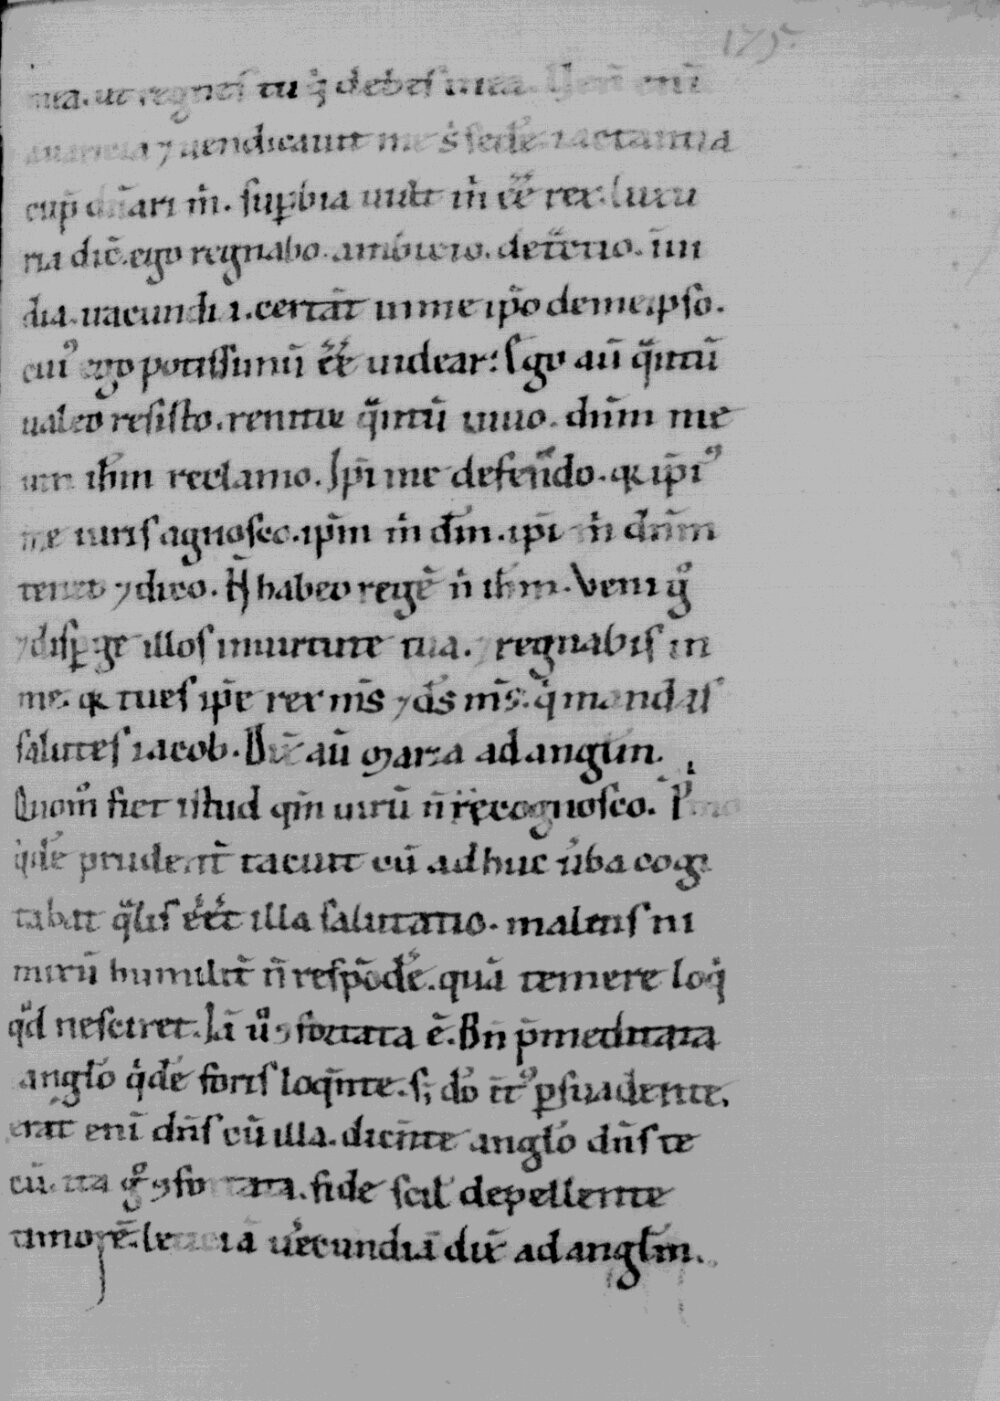 175.
mea. ut regnes tu q̇ debes in ea. Ueñ eni̅
auaricia ⁊ uendicauit me s̓ sede̅. iactantia
cup̅ dn̅ari m̓. sup̱bia uult m̓ e̅e̅ rex. luxu
ria dic̅. ego regnabo. ambicio. det̅ctio. i̅ui
dia. iracundi a. certa̅t in me ip̅o de me ipso.
cui᾿ ego potissimu̅ e̅e̅ uidear. Ego au̅ q̅ntu̅
ualeo resisto. renitor q̅ntu̅ iuuo. dn̅m me
um ih̅m reclamo. Ip̅i me defendo. q̅ ip̅i᾿
me iuris agnosco. ip̅m m̓ d̅m. ip̅i m̓ dn̅m
teneo ⁊ dico. N̅ habeo rege̅ n̓ ih̅m. Veni g̊
⁊ disp̱ge illos in uirtute tua. ⁊ regnabis in
me. q̅ tu es ip̅e rex m̅s ⁊ d̅s m̅s. q̇ mandas
salutes iacob. Dix̅ au̅ maria ad angl̅m.
Quom̊ fiet istud qm̅ uiru̅ n̅ cognosco. P̓mo
q̇de̅ prudent̅ tacuit cu̅ adhuc u̓ba cogi
tabat q̅lis e̅e̅t illa salutatio. malens ni
miru̅ humilit̅ n̅ respo̅de̅. qua̅ temere loq̇
q̊d nesciret. Ia̅ ů ꝯfortata e̅. Bn̅ p̅meditata
anglo̅ q̇de̅ foris loq̅nte. s; do̅ int᾿ p̱suadente.
erat eni̅ dn̅s cu̅ illa. dice̅nte anglo̅ dn̅s te
cu̅. ita g̊ ꝯfortata. fide scil̅ depellente
timore̅. leticia̅ u̓ecundia̅ dix̅ ad angl̅m.